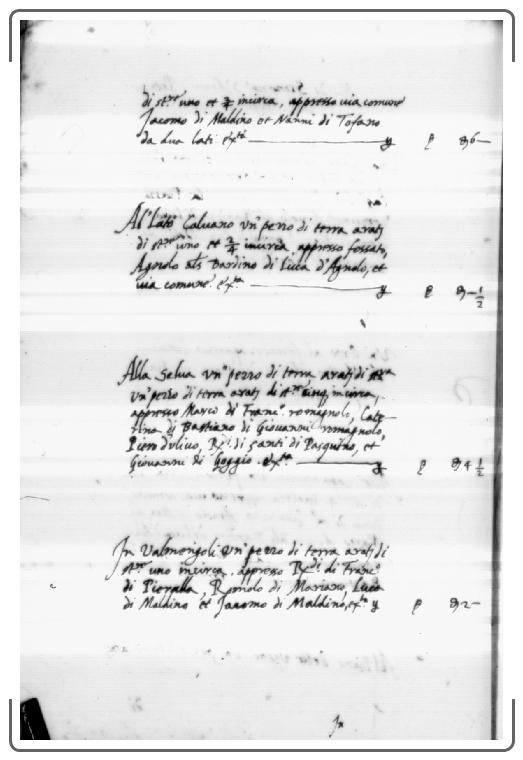 di st.re uno et 2/4 incirca, appresso via comune
Jacomo di Maldino et Nanni di Tofano
da dua lati exti y ₽ 6
Al' Lato Calvano un' pezzo di terra arati
di st.re uno et 2/4 incirca appresso fossato,
Agnolo als Bardino di Luca d'Agnolo, et
via comune. exta y ₽ 1/2
Alla Selva un' pezzo di terra arati di
un' pezzo di terra arati di st.re cinq, incirca,
appresso Marco di Franc.o romagnolo, Cate=
rina di Bastiano di Giovanni romagnolo,
Piero d'ulivo, R.di di Santi di Pasquino, et
Giovanni di Goggio. exta y ₽ 4 1/2
In Valmongoli un' pezzo di terra arati di
st.re uno incirca, appresso R.di di Franc.o
di Pieralla, Romolo di Mariano, Luca
di Maldino et Jacomo di Maldino, exta y ₽ 2
In